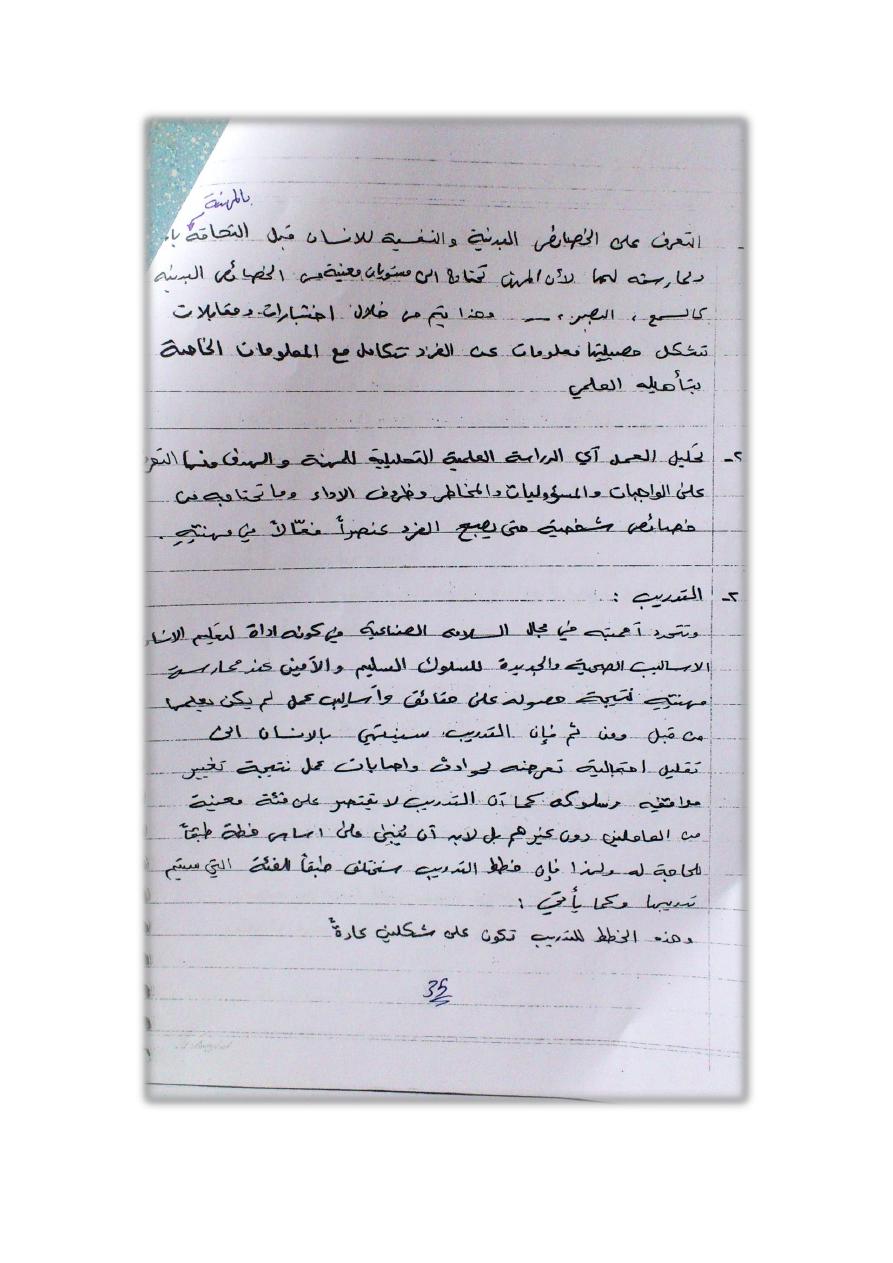 بالمهنة
التعرف على الخصائص البدنية والنفسية للانسان قبل التحاقة با
وممارسته لها لأن المهن تحتاج الى مستويات معينة من الخصائص البدنيه
كالسمع ، البصر ، ــ وهذا يتم من خلال اختبارات ومقابلات
تشكل حصيلتها معلومات عن الفرد تتكامل مع المعلومات الخاصة
بتأهيله العلمي
٢- تحليل العمل آي الدراسة العلمية التحليلية للمهنة والهدف منها التعر
على الواجبات والمسؤوليات والمخاطر وظروف الاداء وما تحتاجه من
خصائص شخصية حتى يصبح الفرد عنصراً فعّالاً في مهنتهِ .
٣- التدريب :
وتتحدد آهميته في مجال السلامه الصناعية في كونه اداة لتعليم الانسا
الاساليب الصحية والجديدة للسلوك السليم والآمين عند ممارسة
مهنتهِ نتيجة حصوله على حقائق وآساليب عمل لم يكن يعلمها
من قبل ومن ثم فإن التدريب سينتهي بالانسان الى
تقليل احتمالية تعرضه لحوادث واصابات عمل نتيجة تغيير
مواقفه وسلوكه كما آن التدريب لا يقتصر على فئة معينة
من العاملين دون غيرهم بل لابد آن يُبنى على اساس خطة طبقاً
للحاجة له ولهذا فإن خطط التدريب ستختلف طبقاً للفئة التي سيتم
تدريبها وكما يأتي :
وهذه الخطط للتدريب تكون على شكلين عادةً
35